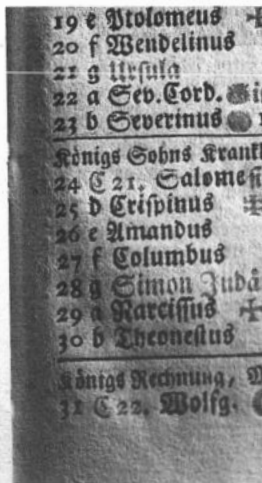 19 e Ptolomeus ✠
20 f Wendelinus
21 g Ursula
22 a Sev.Cord.
23 b Severinus
Königs Sohns Krankh
24 C 21. Salome
25 d Criſpinus ✠
26 e Amandus
27 f Columbus
28 g Simon Judå
29 a Narciſſus ✠
30 b Theoneſtus
Königs Rechnung,
31 C 22. Wolfg.